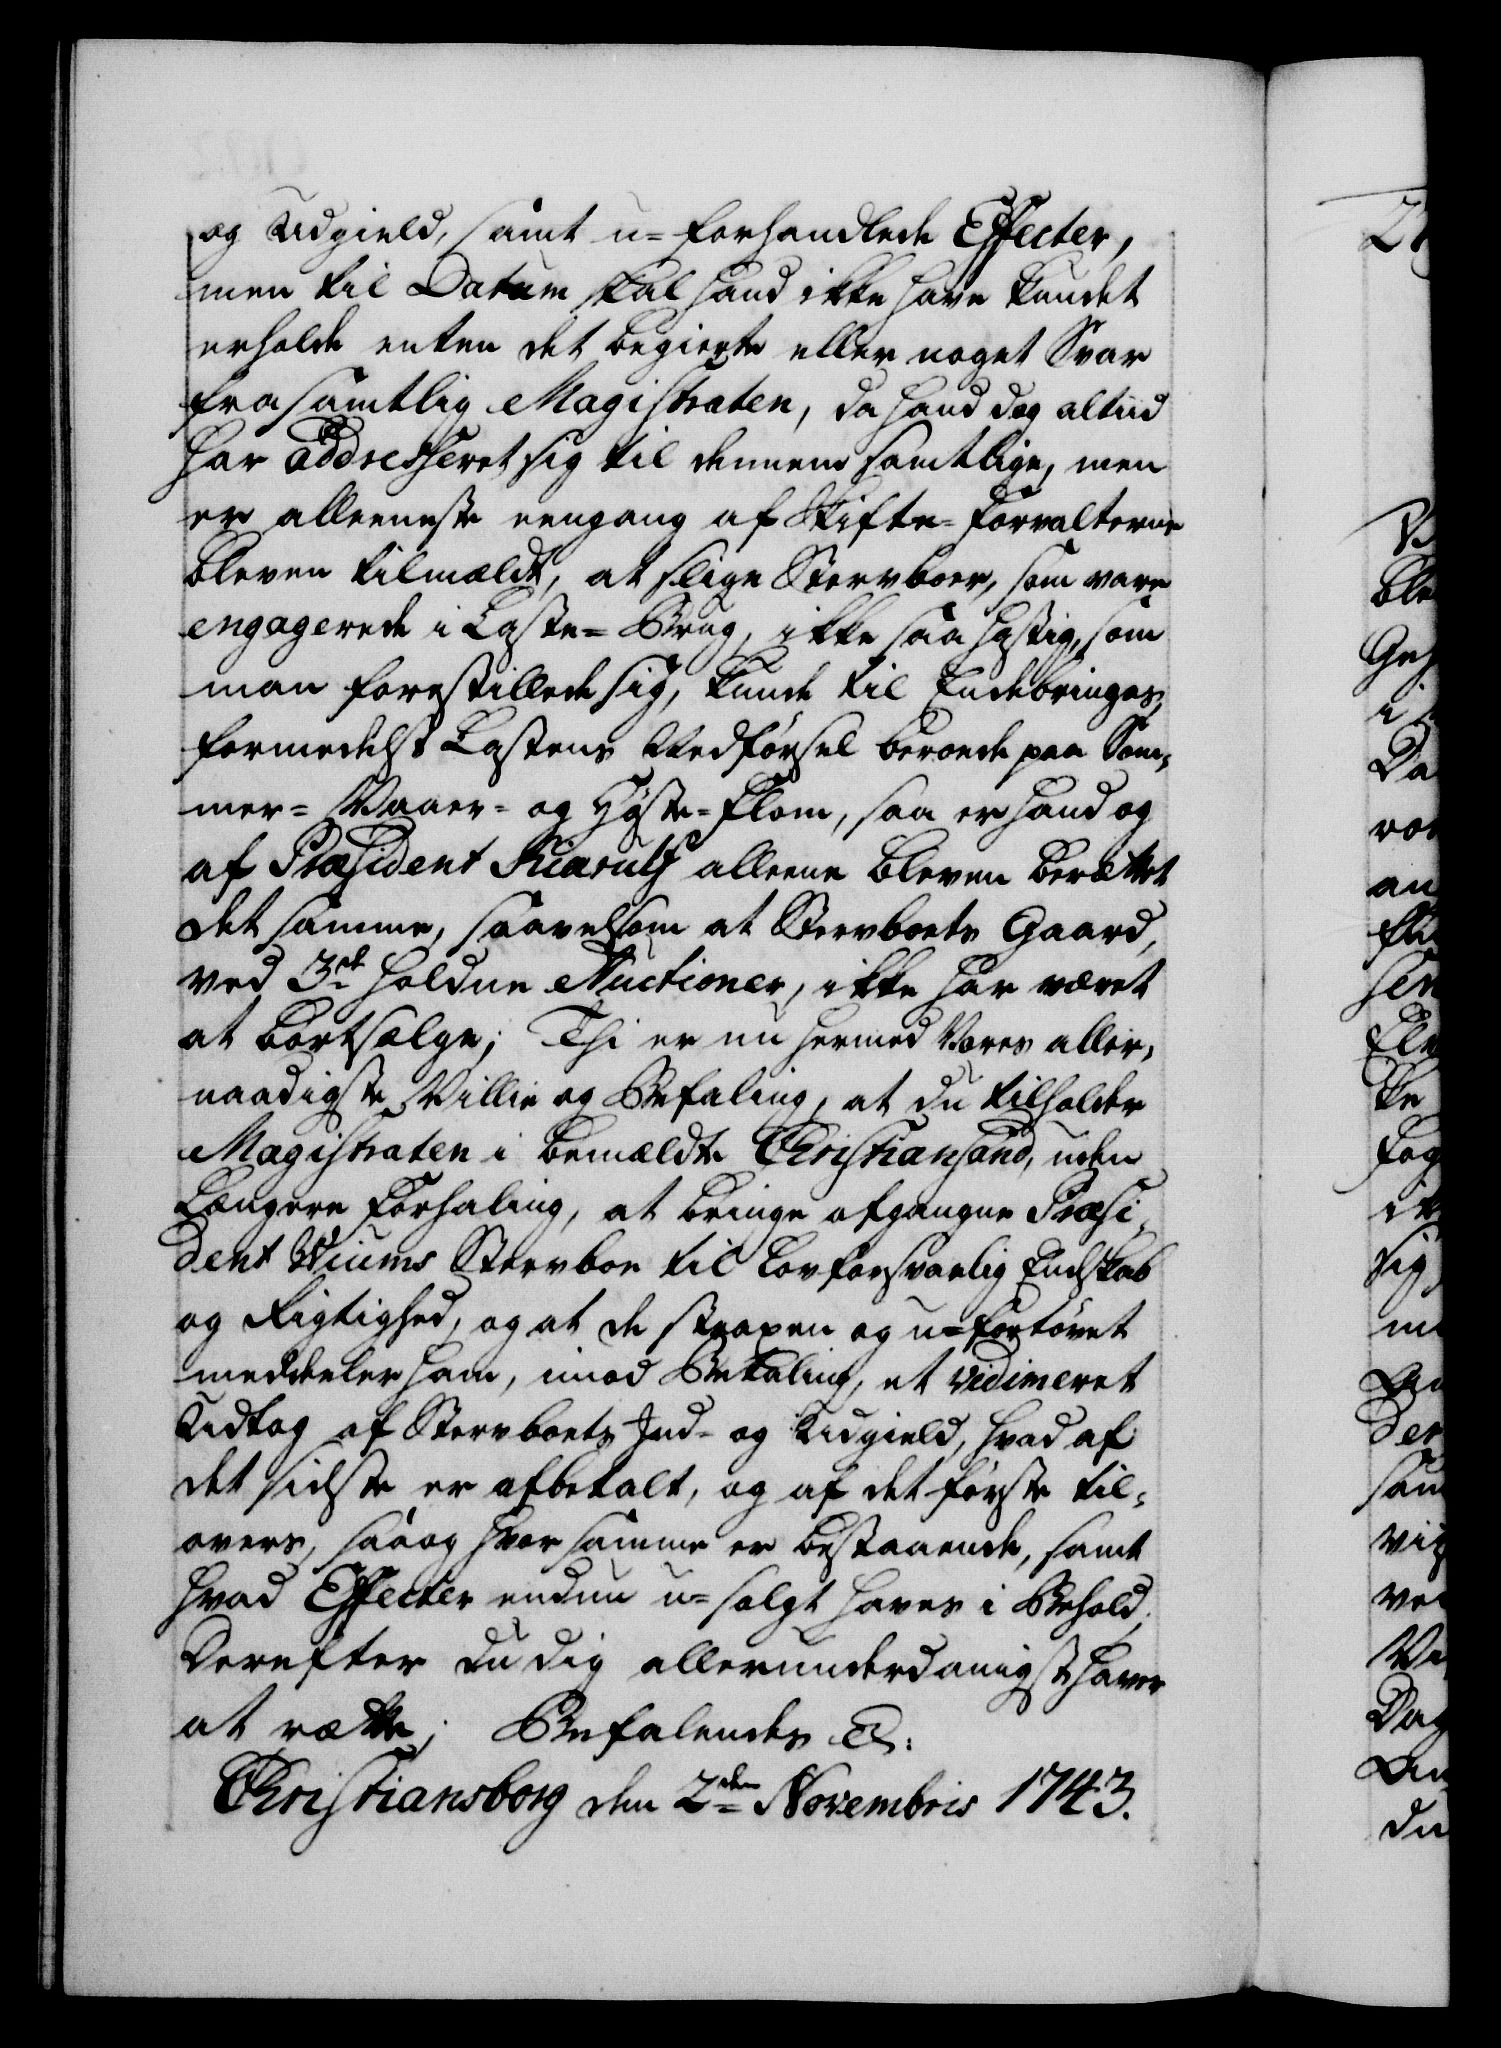 og Udgield, samt u-forhandlede Effecter,
men til Datum skal hand ikke have kundet
erholde enten det begierte eller noget Svar
fra samtlig Magistraten, da hand dog altiid
har addresseret sig til dennem samtlige, men
er alleeneste eengang af Skifte-Forvalterne
bleven tilmældt, at slige Stervboer, som vare
engagerede i Laste-Brug, ikke saa hastig, som
man forestillede sig, kunde til Ende bringes,
formedelst Lastens Nedførsel beroede paa Som-
mer- Vaaer- og Høste-Flom, saa er hand og
af Præsident Kiærulf alleene bleven berættet
det samme, saavelsom at Stervboets Gaard,
ved 3de holdne Auctioner, ikke har været
at bortsælge; Thi er nu hermed Vores aller-
naadigste Villie og Befaling, at du tilholder
Magistraten i bemældte Christiansand, uden
længere Forhaling, at bringe afgangne Præsi-
dent Wiums Stervboe til lovforsvarlig Endskab
og Rigtighed, og at de strapen og u-fortøvet
meddeeler ham, imod Betaling, et vidimeret
Udtog af Stervboets Ind- og Udgield, hvad af
det sidste er afbetalt, og af det første til-
overs, saa og hvor samme er bestaaende, samt
hvad Effecter endnu u-solgt haves i Behold;
Derefter du dig allerunderdanigst haver
at rætte; Befalendes &c:
Christiansborg den 2den Novembris 1743.